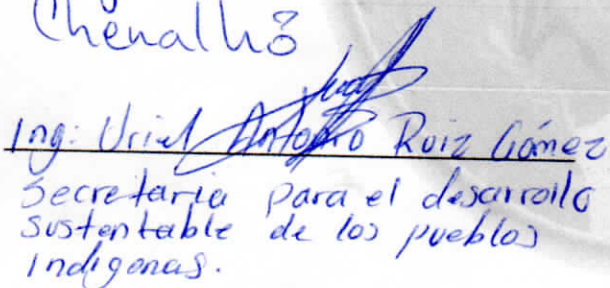 Chenalhó
Ing: Uriel Antonio Ruiz Gómez
Secretaria para el desarrollo
sustentable de los pueblos
indigenas.